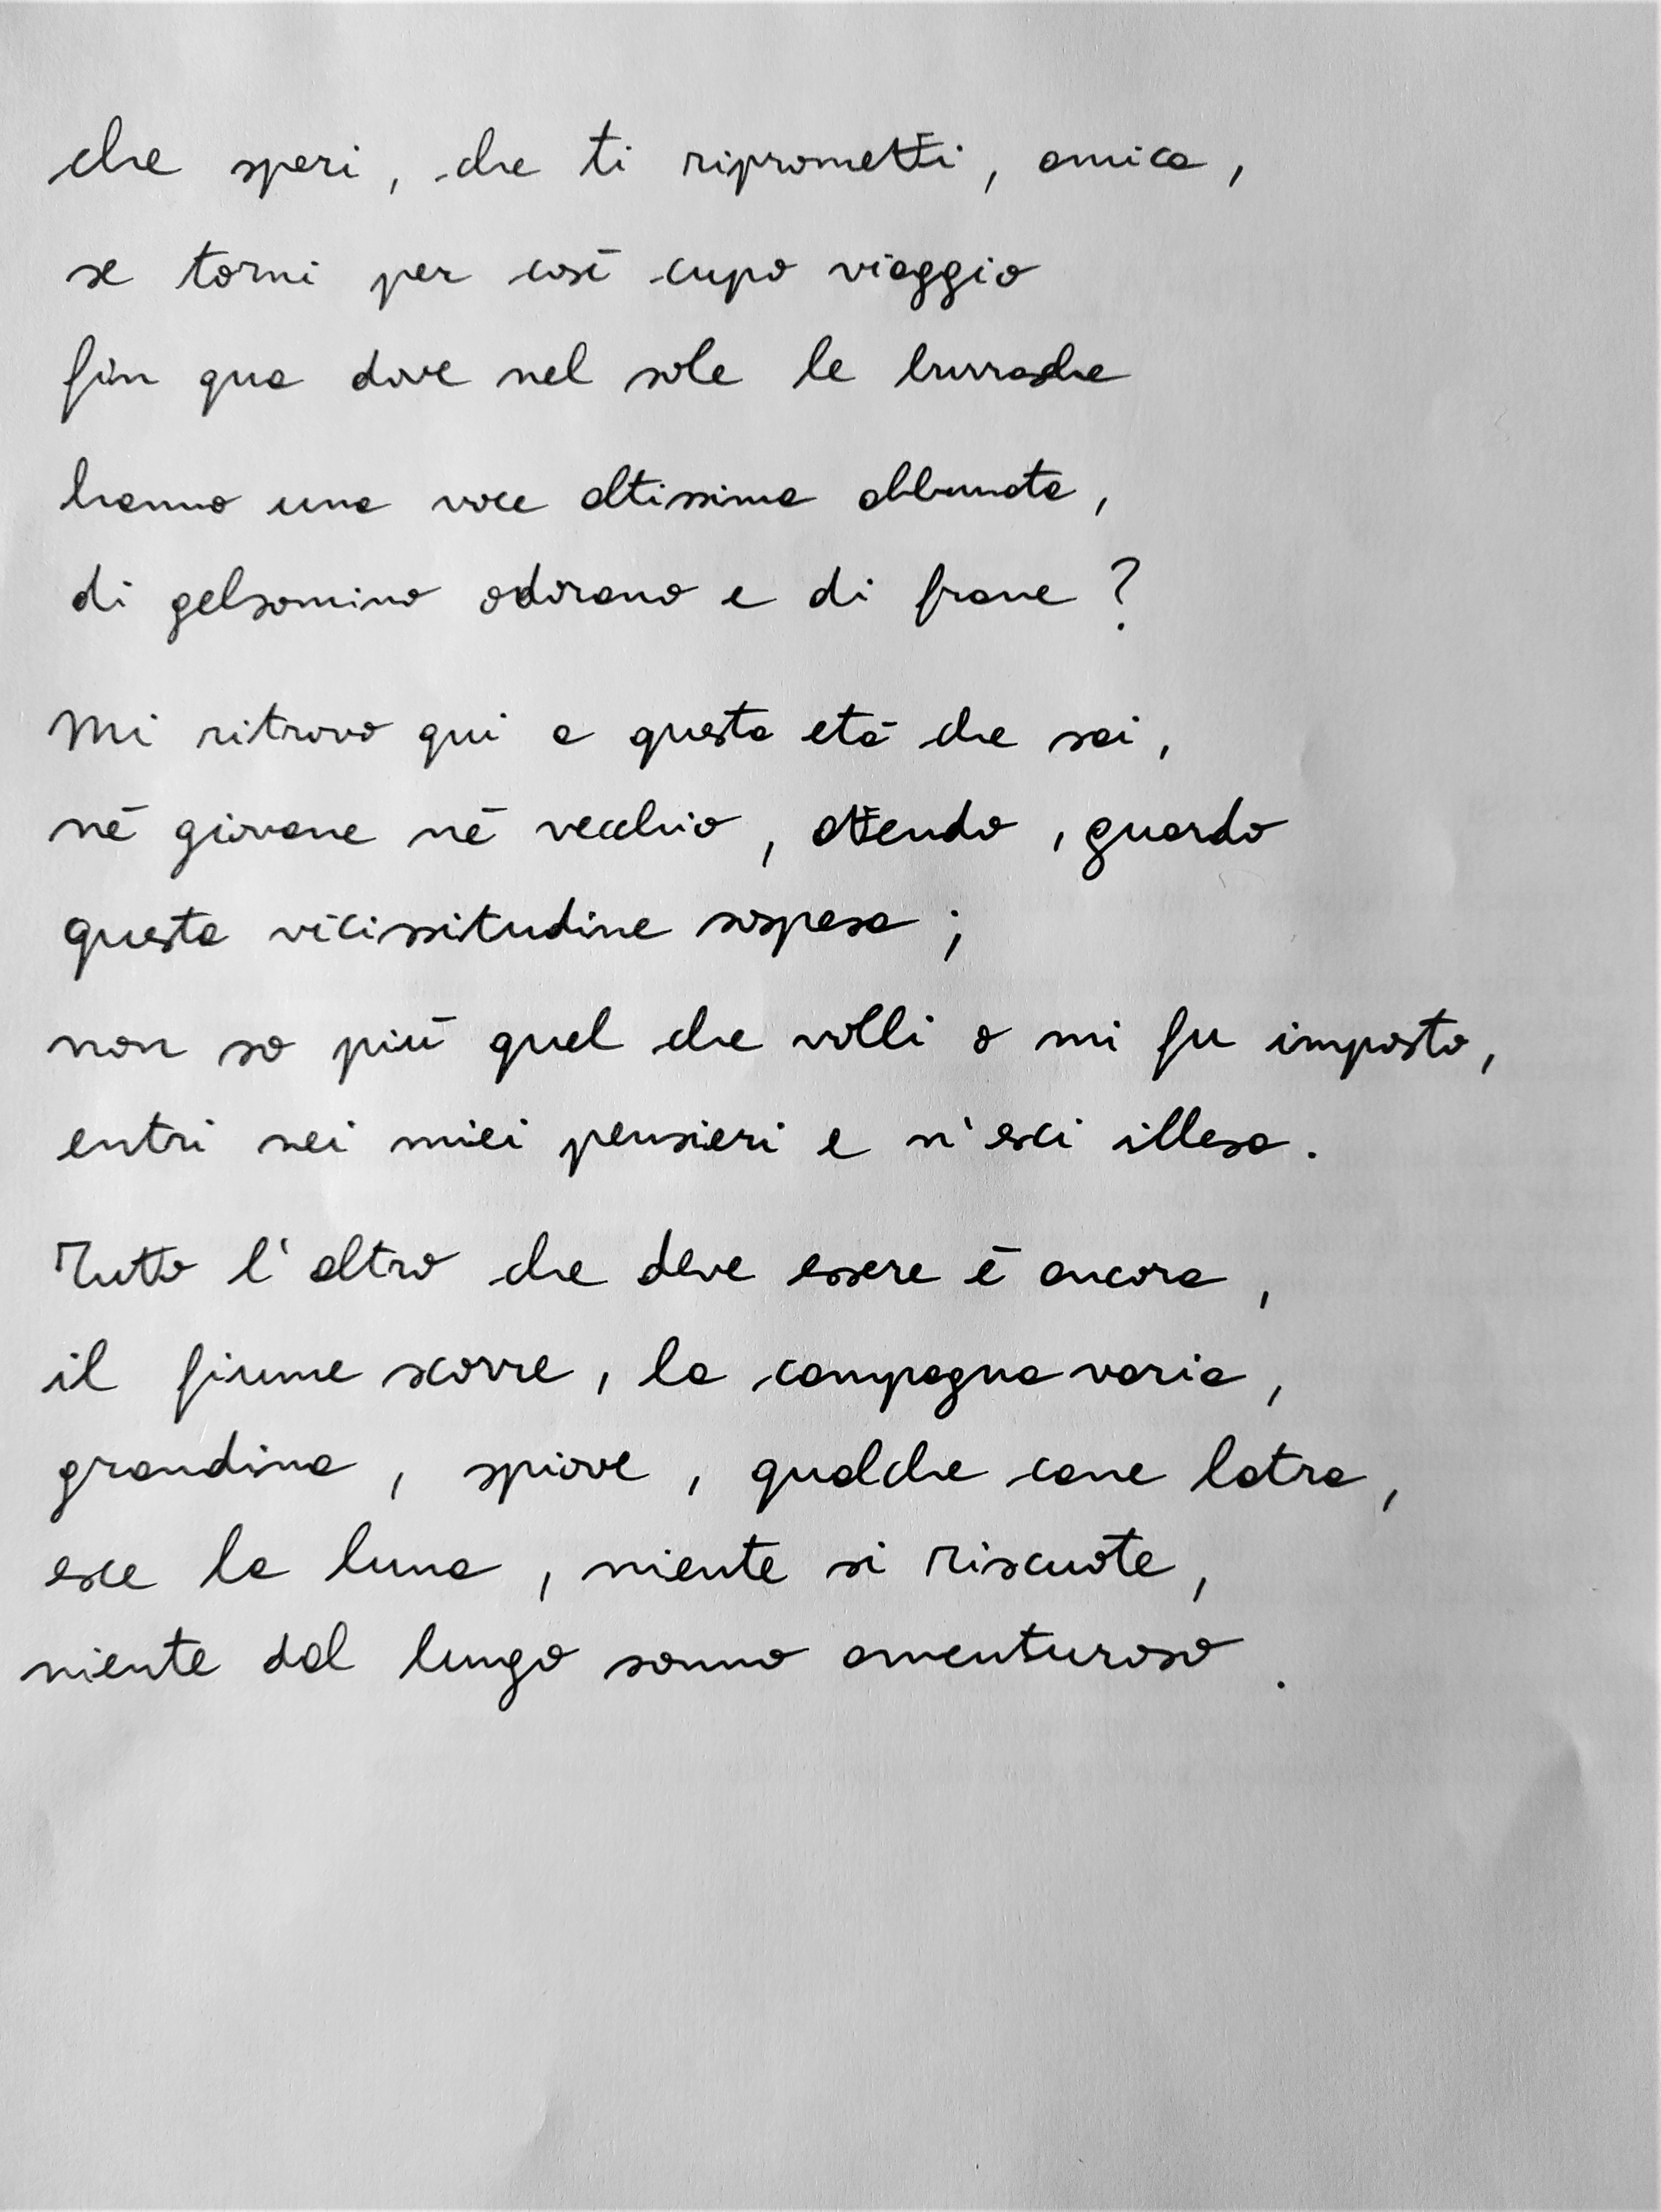 che speri, che ti riprometti, amica,
se torni per così cupo viaggio
fin qua dove nel sole le burrasche
hanno una voce altissima abbrunata,
di gelsomino odorano e di frane?
Mi ritrovo qui a questa età che sai,
né giovane né vecchio, attendo, guardo
questa vicissitudine sospesa;
non so più quel che volli o mi fu imposto,
entri nei miei pensieri e n'esci illesa.
Tutto l'altro che deve essere è ancora,
il fiume scorre, la campagna varia,
grandina, spiove, qualche cane latra,
esce la luna, niente si riscuote,
niente dal lungo sonno avventuroso.